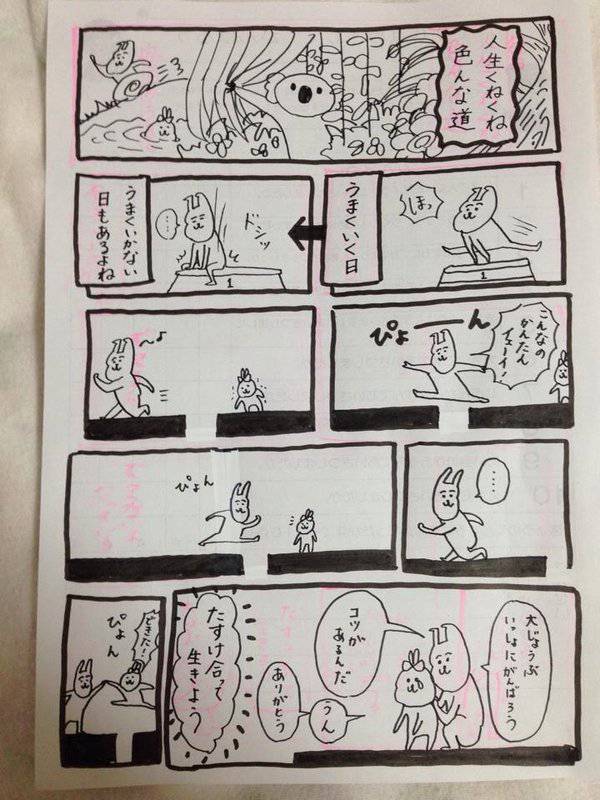 人生くねくね
色んな道
ほっ
1
うまくいく日
ドシッ
……
1
うまくいかない
日もあるよね
こんなの
かんたん
イェーイ!
ぴょーーん
〜♪
……
ぴょん
大じょうぶ
いっしょにがんばろう
コツが
あるんだ
うん
ありがとう
たすけ合って
生きよう
できた!
ぴょん